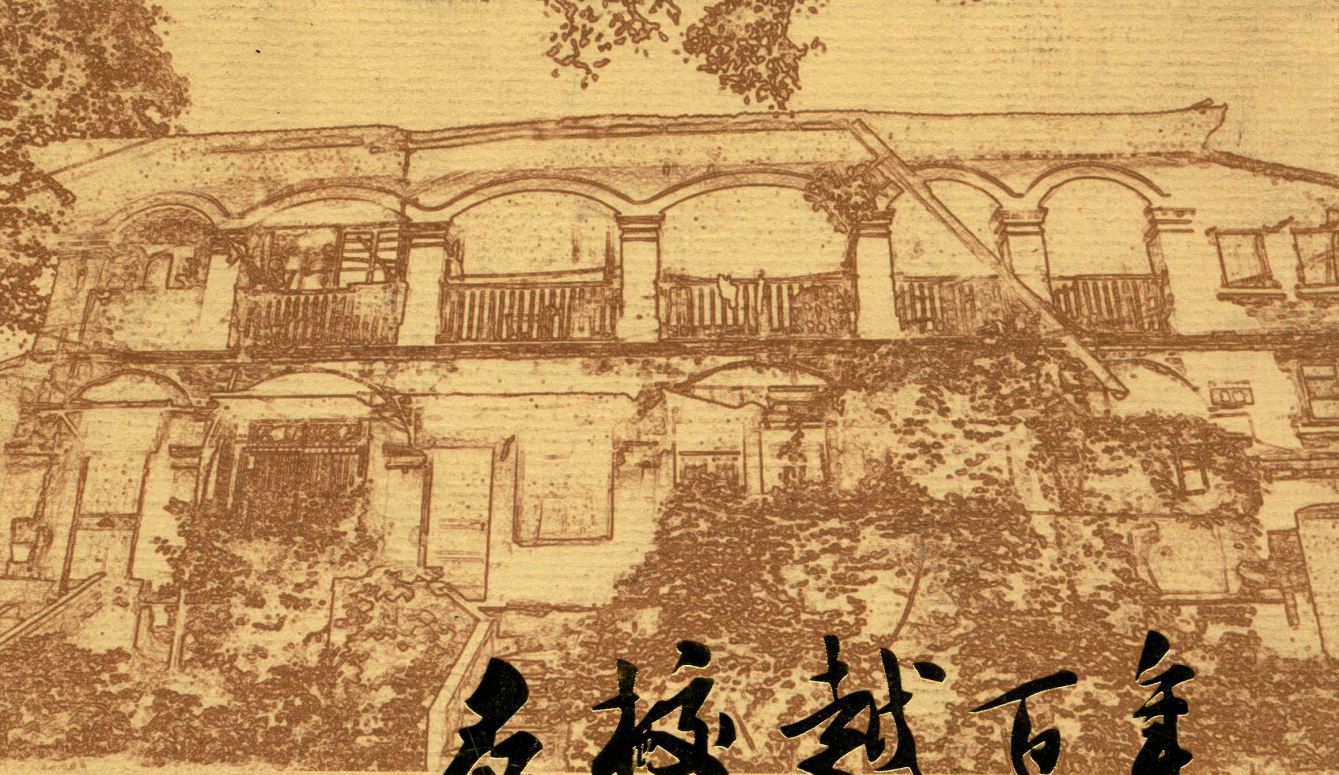 名校越百年